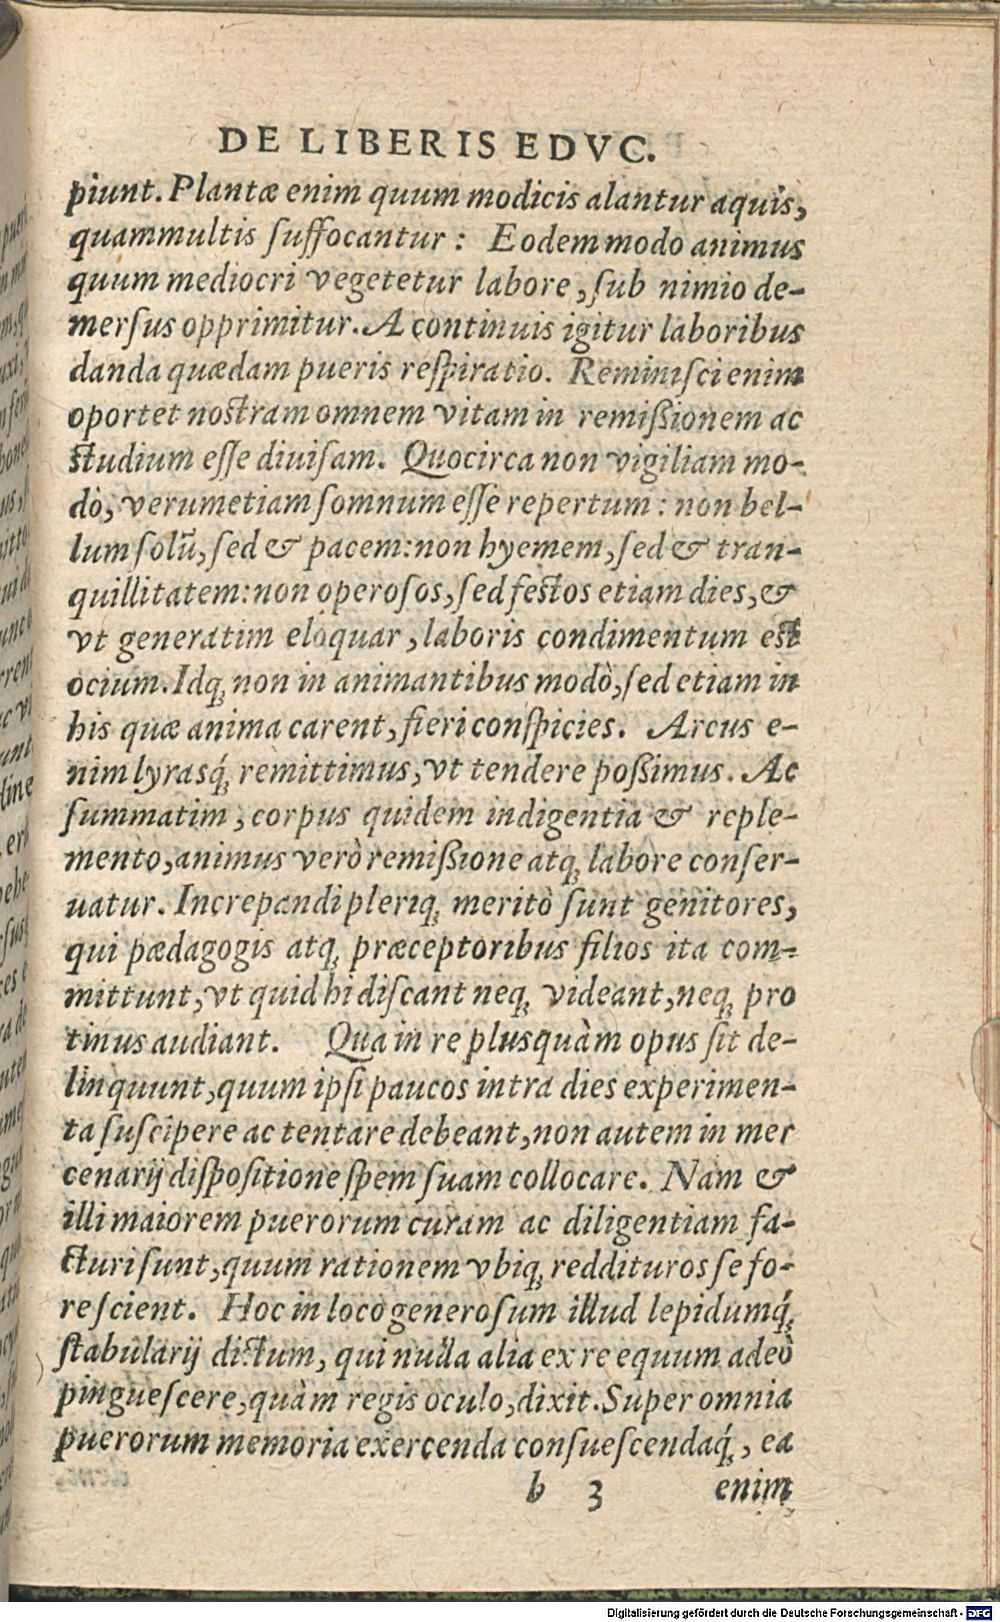 DE LIBERIS EDVC.
piunt. Plantæ enim quum modicis alantur aquis,
quammultis ſuffocantur: Eodem modo animus
quum mediocri vegetetur labore, ſub nimio de-
merſus opprimitur. A continuis igitur laboribus
danda quædam pueris reſpiratio. Reminiſci enim
oportet noſtram omnem vitam in remiſsionem ac
ſtudium eſſe diuiſam. Quocirca non vigiliam mo-
dò, verumetiam ſomnum eſſe repertum: non bel-
lum ſolū, ſed & pacem: non hyemem, ſed & tran-
quillitatem: non operoſos, ſed feſtos etiam dies, &
vt generatim eloquar, laboris condimentum eſt
ocium. Idq; non in animantibus modò, ſed etiam in
his quæ anima carent, fieri conſpicies. Arcus e-
nim lyrasq́; remittimus, vt tendere poſsimus. Ac
ſummatim, corpus quidem indigentia & reple-
mento, animus verò remiſsione atq; labore conſer-
uatur. Increpandi pleriq; meritò ſunt genitores,
qui pædagogis atq; præceptoribus filios ita com-
mittunt, vt quid hi diſcant neq; videant, neq; pro
tinus audiant. Qua in re plusquàm opus ſit de-
linquunt, quum ipſi paucos intra dies experimen-
ta ſuſcipere ac tentare debeant, non autem in mer
cenarij diſpoſitione ſpem ſuam collocare. Nam &
illi maiorem puerorum curam ac diligentiam fa-
cturi ſunt, quum rationem vbiq; reddituros ſe fo-
re ſcient. Hoc in loco generoſum illud lepidumq́;
ſtabularij dictum, qui nulla alia ex re equum adeò
pingueſcere, quàm regis oculo, dixit. Super omnia
puerorum memoria exercenda conſueſcendaq́;, ea
b 3 enim
Digitalisierung gefördert durch die Deutsche Forschungsgemeinschaft - DFG